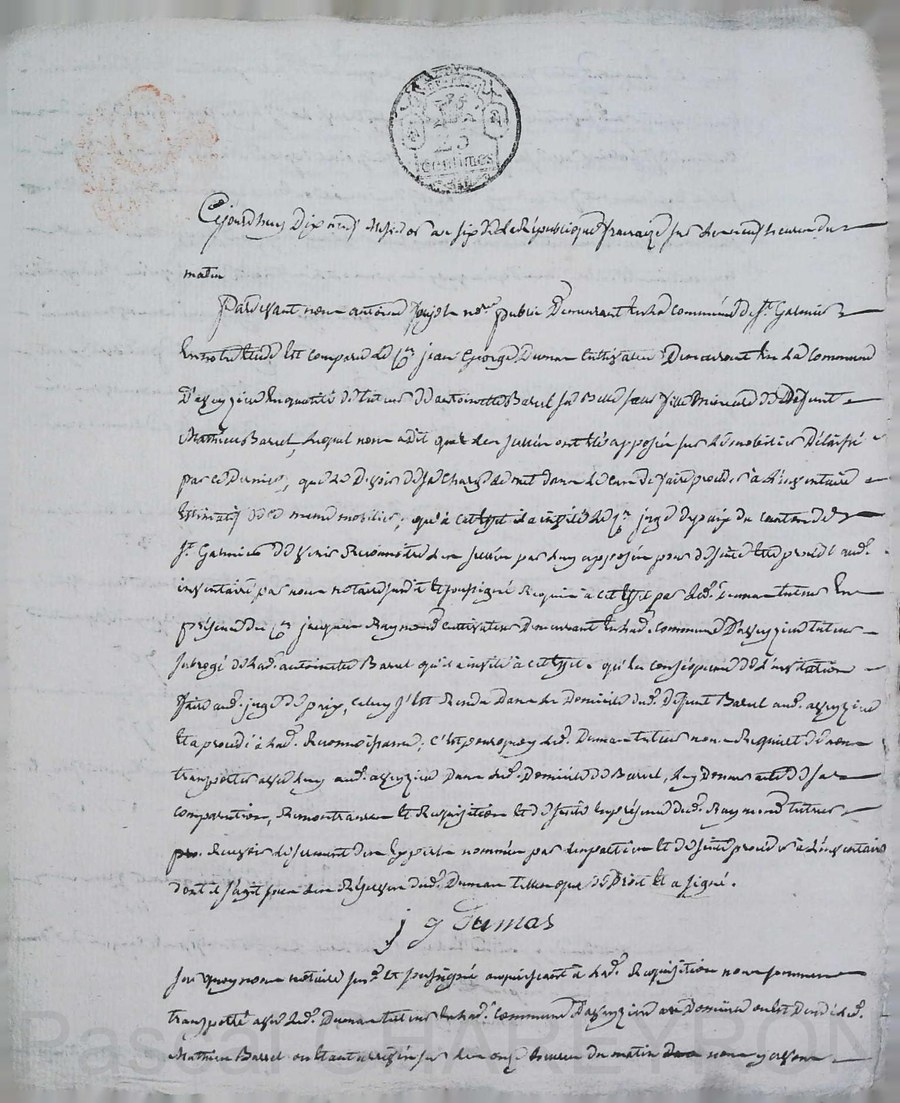 25
Centimes
Cejourdhuy Dix neuf Messidor an six de la Republique francaise sur les neuf heures du
matin
Pardevant nous antoine pujol no.re public Demeurant en la commune de St. Galmier
En notre Etude Est comparu le C.en jean George Dumas Cultivateur Demeurant En la Commune
D'aveyzieu En qualité de tuteur de antoinette Barel sa Belle sœur fille mineure de Défunt
Mathieu Barel, Lequel nous a dit que des scellés ont été apposés sur le mobilier Délaissé
par ce Dernier, que le Devoir de sa Charge le met dans le cas de faire procéder à L'inventaire
Estimatif de ce meme mobilier, qu'à cet effet il a invité le C.en juge de paix du canton de
St. Galmier de venir Reconnoitre les scellés par luy apposés pour de suite Etre procédé aud.
inventaire par nous notaire et soussigné Requis à cet Effet par led. Dumas tuteur En
présence du C.en jacques Raymond cultivateur Demeurant En lad. Commune D'aveyzieu tuteur
subrogé de lad. antoinette Barel qu'il a invité à cet Effet. qu'en conséquence de L'invitation
faite aud. juge de paix, celuy s'est Rendu Dans le Domicile dud. Défunt Barel aud. aveyzieu
Et a procédé à lad. Reconnoissance, c'est pourquoy led. Dumas tuteur nous Requiert de nous
transporter avec luy aud. aveyzieu Dans led. Domicile de Barel, luy Donner acte de sa
comparution, Remontrance et Requisition et de suite En présence dud. Raymond tuteur
Recevoir le serment des Experts nommés par les parties et de suite procéder à L'inventaire
dont il s'agit sous les Réserves dud. Dumas telles que de Droit Et a signé.
j g Dumas
Sur quoy nous notaire sus.d et soussigné acquiescant à lad. Requisition nous sommes
transporté avec led. Dumas tuteur En lad. Commune D'aveyzieu au Domicile ou est Décédé led.
Mathieu Barel ou Etant arrivés sur les onze heures du matin nous y avons
Pascal CHAREYRON